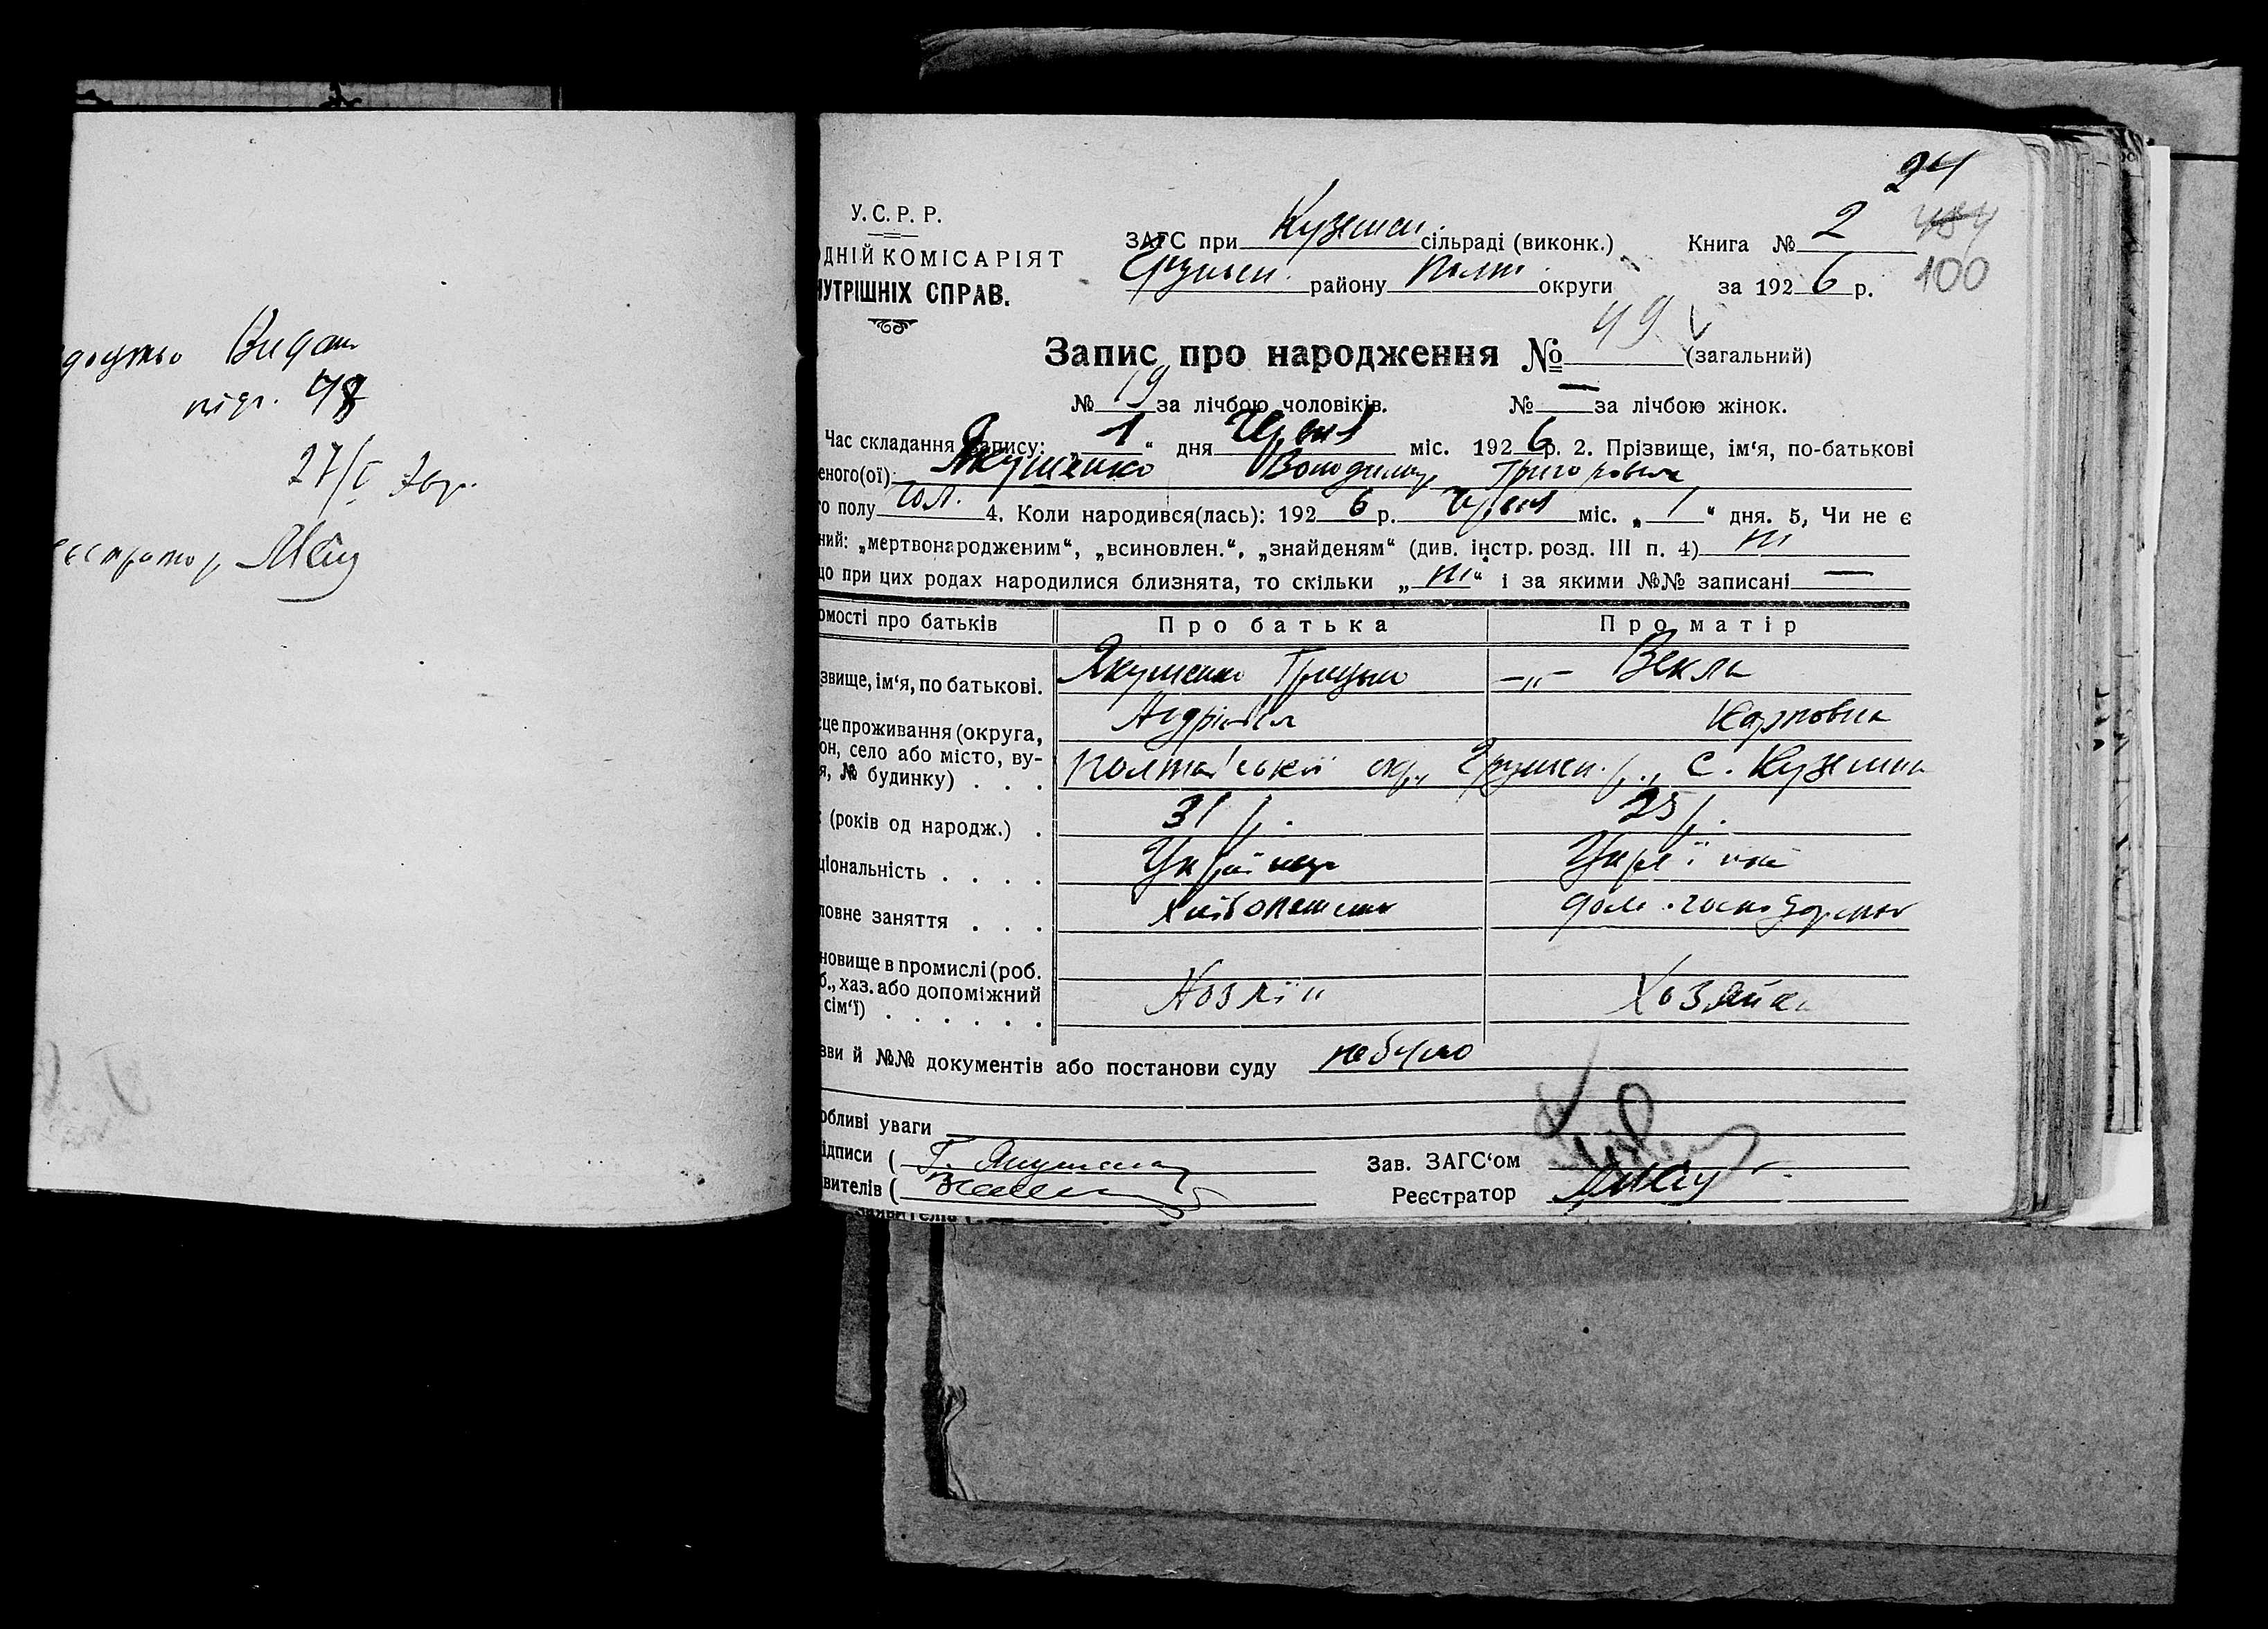 Видан
27/I
24
У.С.Р.Р.
ОДНІЙ КОМІСАРІЯТ
НУТРІШНІХ СПРАВ.
ЗАГС при Куземен. сільраді (виконк.) Книга № 2
Грунськ. району Полт. округи за 1926 р. 100
Запис про народження № 49 (загальний)
№ 19 за лічбою чоловіків. № — за лічбою жінок.
Час складання запису: „1“ дня Червня міс. 1926 р. 2. Прізвище, ім‘я, по-батькові
еного(ої): Якушенко Володимир Григорович
го полу чол. 4. Коли народився(лась): 1926 р. Червня міс. „1“ дня. 5, Чи не є
ний: „мертвонародженим“, „всиновлен.“, „знайденям“ (див. інстр. розд. III п. 4) ні
що при цих родах народилися близнята, то скільки „ні“ і за якими №№ записані —
омості про батьків Про батька Про матір
звище, ім‘я, по батькові. Якушенко Грицько —„— Векла
Андрієвич Карповна
сце проживання (округа,
он, село або місто, ву-
я, № будинку) . . . Полтавської окр., Грунськ. р., с. Куземин
(років од народж.) . 31 р. 25 р.
ціональність . . . . Українець Українка
ловне заняття . . . Хлібопашець дом. господарство
новище в промислі (роб.
б., хаз. або допоміжний
сім‘ї) . . . . . . Хозяїн Хозяйка
зви й №№ документів або постанови суду не було
обливі уваги
ідписи ( Г. Якушенко
вителів (
Зав. ЗАГС‘ом
Реєстратор